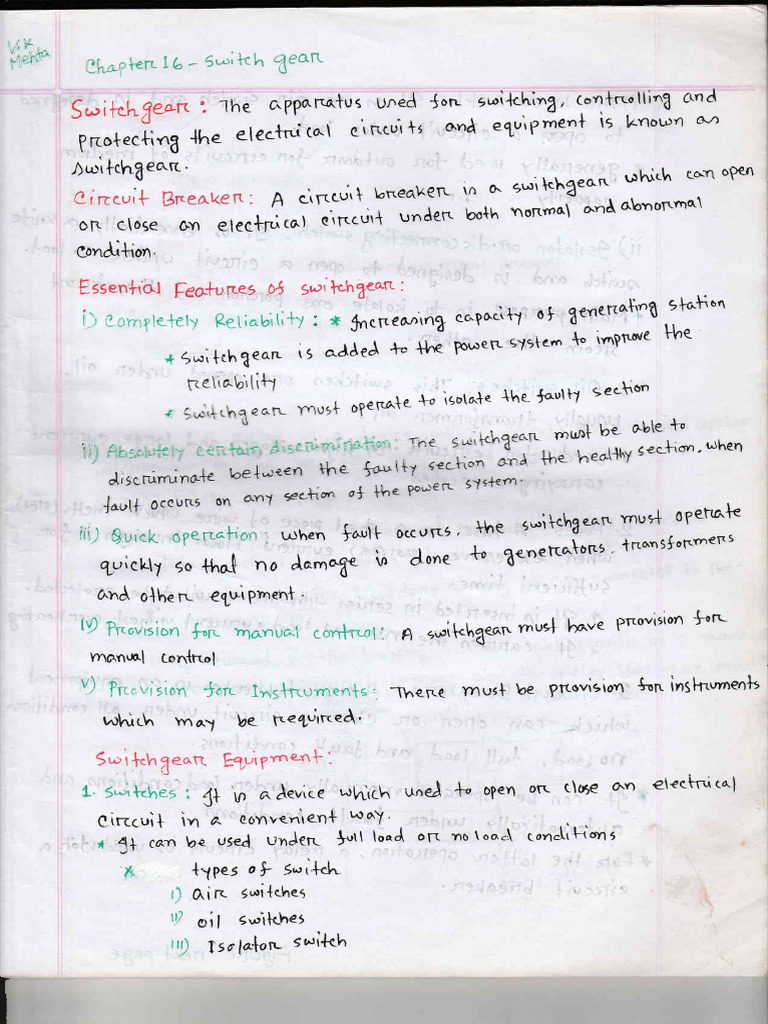 V.K
Mehta
Chapter 16 - Switch gear
Switchgear : The apparatus used for switching, controlling and
protecting the electrical circuits and equipment is known as
switchgear.
Circuit Breaker: A circuit breaker is a switchgear which can open
or close an electrical circuit under both normal and abnormal
condition.
Essential Features of switchgear:
i) Completely Reliability : * Increasing capacity of generating station
* Switchgear is added to the power system to improve the
reliability
* Switchgear must operate to isolate the faulty section
ii) Absolutely certain discrimination: The switchgear must be able to
discriminate between the faulty section and the healthy section, when
fault occurs on any section of the power system.
iii) Quick operation; when fault occurs, the switchgear must operate
quickly so that no damage is done to generators, transformers
and other equipment.
iv) Provision for manual control: A switchgear must have provision for
manual control
v) Provision for Instruments: There must be provision for instruments
which may be required.
Switchgear Equipment:
1. Switches: It is a device which used to open or close an electrical
circuit in a convenient way.
* It can be used under full load or no load conditions
* types of switch
i) air switches
ii) oil switches
iii) Isolator switch